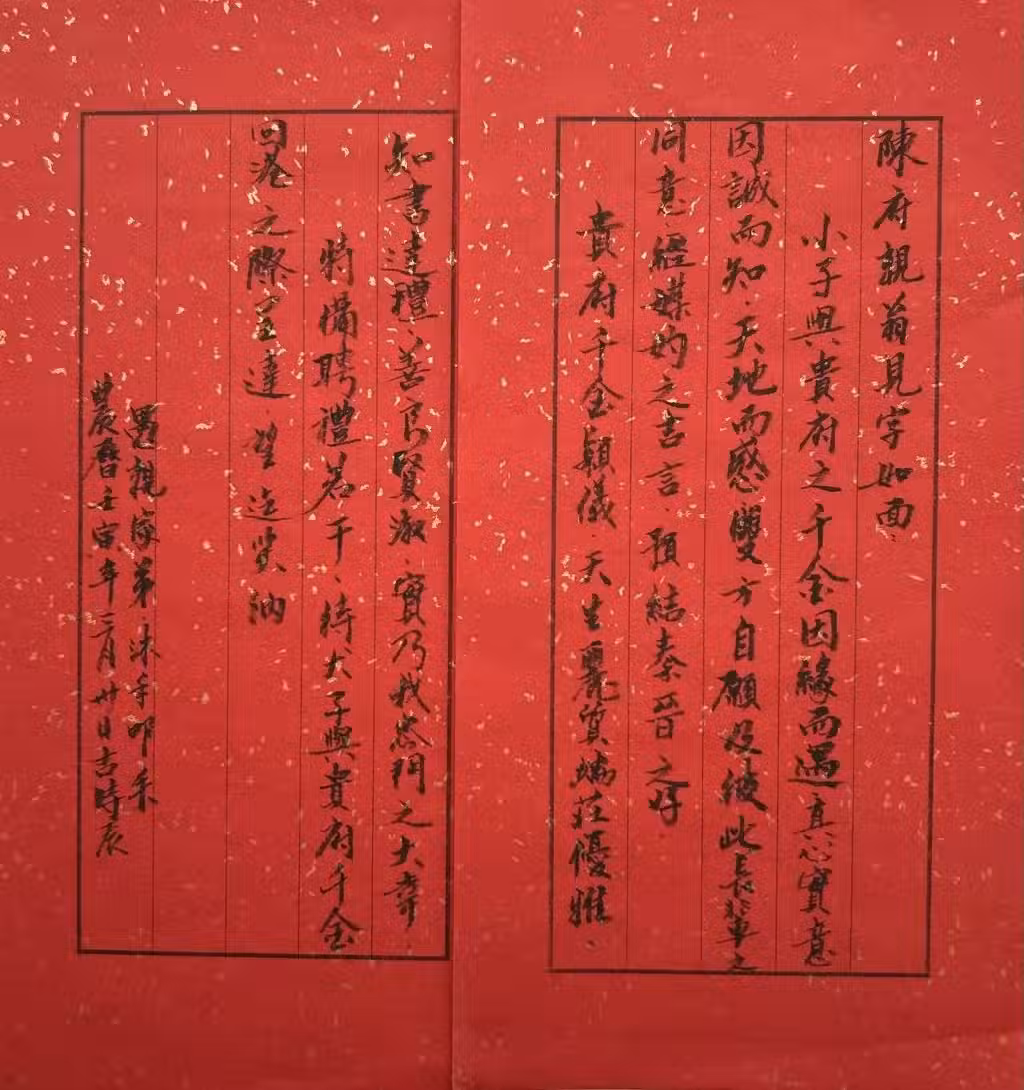 陳府親翁見字如面
小子與貴府之千金因緣而遇真心實意
因誠而知天地而感雙方自願及彼此長輩之
同意經媒妁之吉言預結秦晉之好
貴府千金穎儀天生麗質端莊優雅
知書達禮善良賢淑實乃我忝門之大幸
特備聘禮若干待犬子與貴府千金
回港之際呈達望迄笑納
愚親家弟沐手叩
農曆壬寅年三月廿日吉時辰